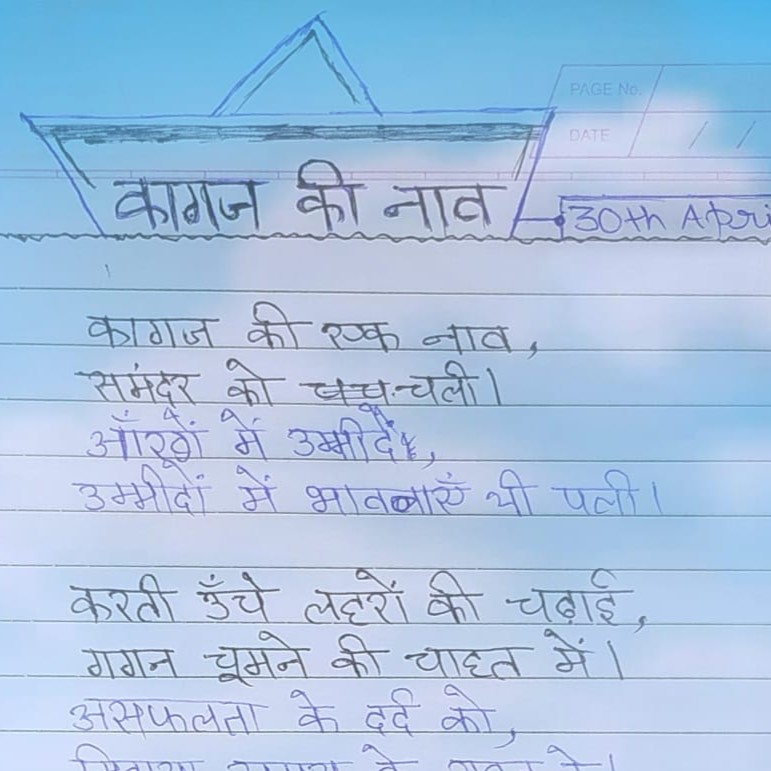 PAGE No.
DATE / /
कागज की नाव
30th Apri
कागज की एक नाव,
समंदर को चली।
आँखों में उम्मीदें,
उम्मीदों में भावनाएँ थी पली।
करती उँचे लहरों की चढ़ाई,
गगन चूमने की चाहत में।
असफलता के दर्द को,